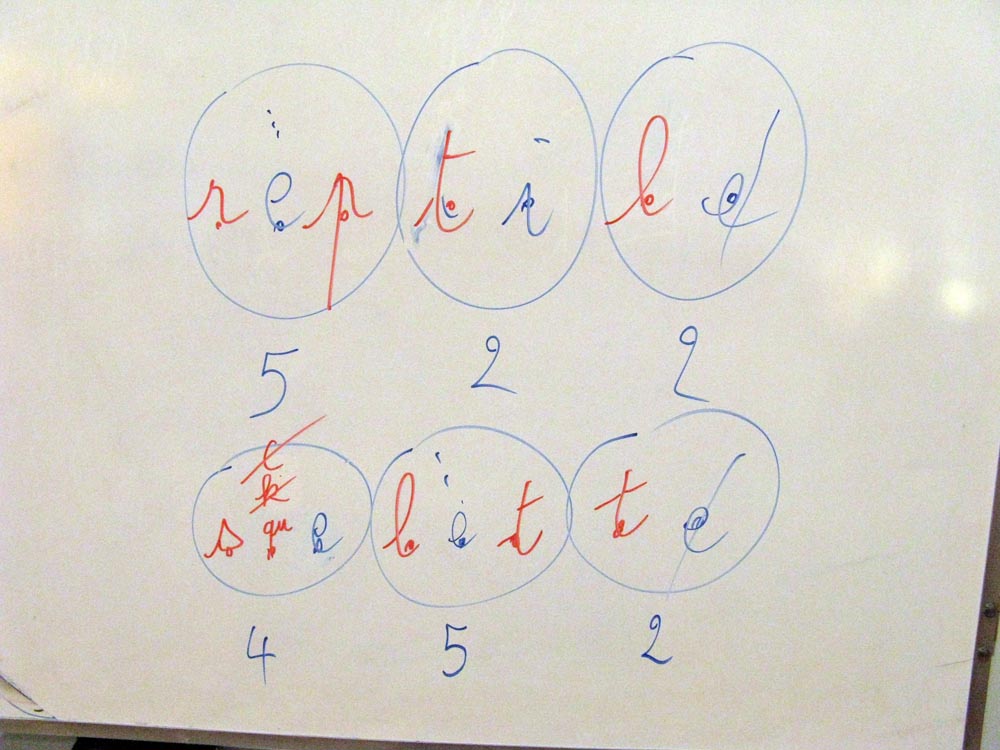 rep ti le
5 2 2
c
k
sque let te
4 5 2